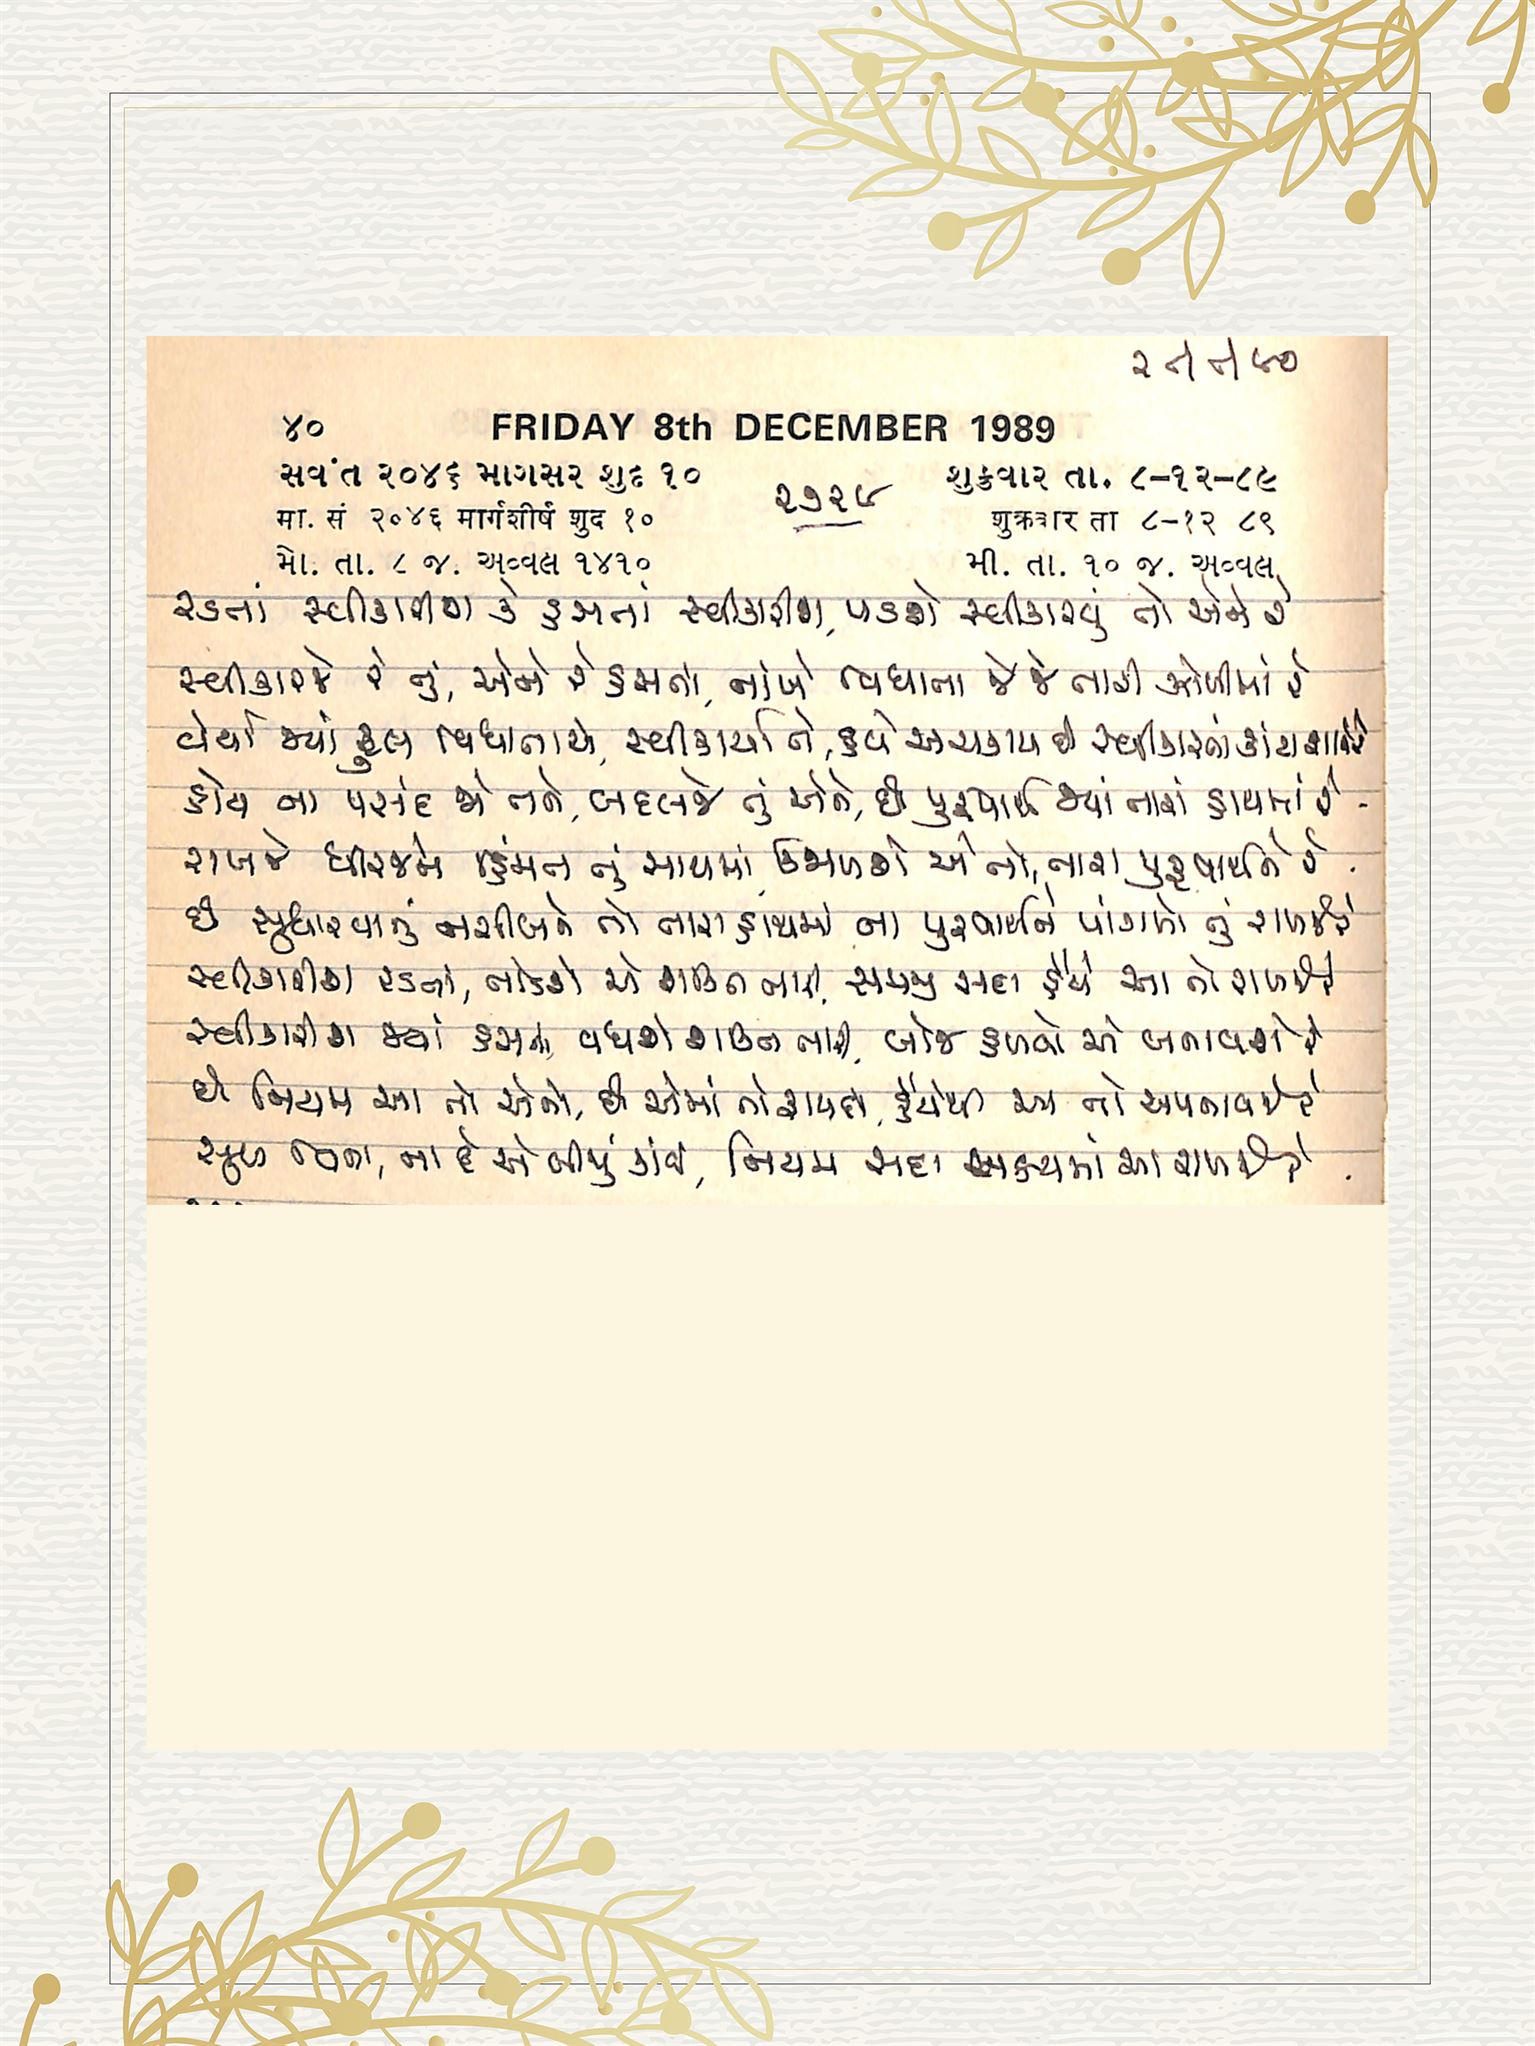 ૪૦ FRIDAY 8th DECEMBER 1989
સવંત ૨૦૪૬ માગસર શુદ ૧૦ શુક્રવાર તા. ૮-૧૨-૮૯
मा. सं २०४६ मार्गशीर्ष शुद १० शुक्रवार ता ८-१२ ८९
મો. તા. ૮ જ. અવ્વલ ૧૪૧૦ મી. તા. ૧૦ જ. અવ્વલ
રડતાં સ્વીકારીશ કે હસતાં સ્વીકારીશ, પડશે સ્વીકારવું તો એને રે
સ્વીકારજે રે તું, એને રે હસતા, નાંખે વિધાતા જે જે તારી ઝોળીમાં રે
વેર્યાં જ્યાં ફૂલ વિધાતાએ, સ્વીકાર્યા તે, હવે અચકાય છે સ્વીકારતાં કાંટા શાને રે
હોય ના પસંદ જો તને, બદલજે તું એને, છે પુરુષાર્થ જ્યાં તારાં હાથમાં રે
રાખજે ધીરજને હિંમત તું સાથમાં, ઉજાળશે એ તો, તારા પુરુષાર્થને રે
છે સુધારવાનું નસીબને તો તારા હાથમાં ના પુરુષાર્થને પાંગળો તું રાખજે રે
સ્વીકારીશ રડતાં, તોડશે એ શક્તિ તારી, સમજ સદા હૈયે આ તો રાખજે રે
સ્વીકારીશ જ્યાં હસતાં, વધશે શક્તિ તારી, બોજ હળવો એ બનાવશે રે
છે નિયમ આ તો એનો, છે એમાં તો ફાયદો, હૈયેથી આ તો અપનાવજે રે
સુખ વિના, ના દે એ બીજું કાંઈ, નિયમ સદા લક્ષ્યમાં આ રાખજે રે